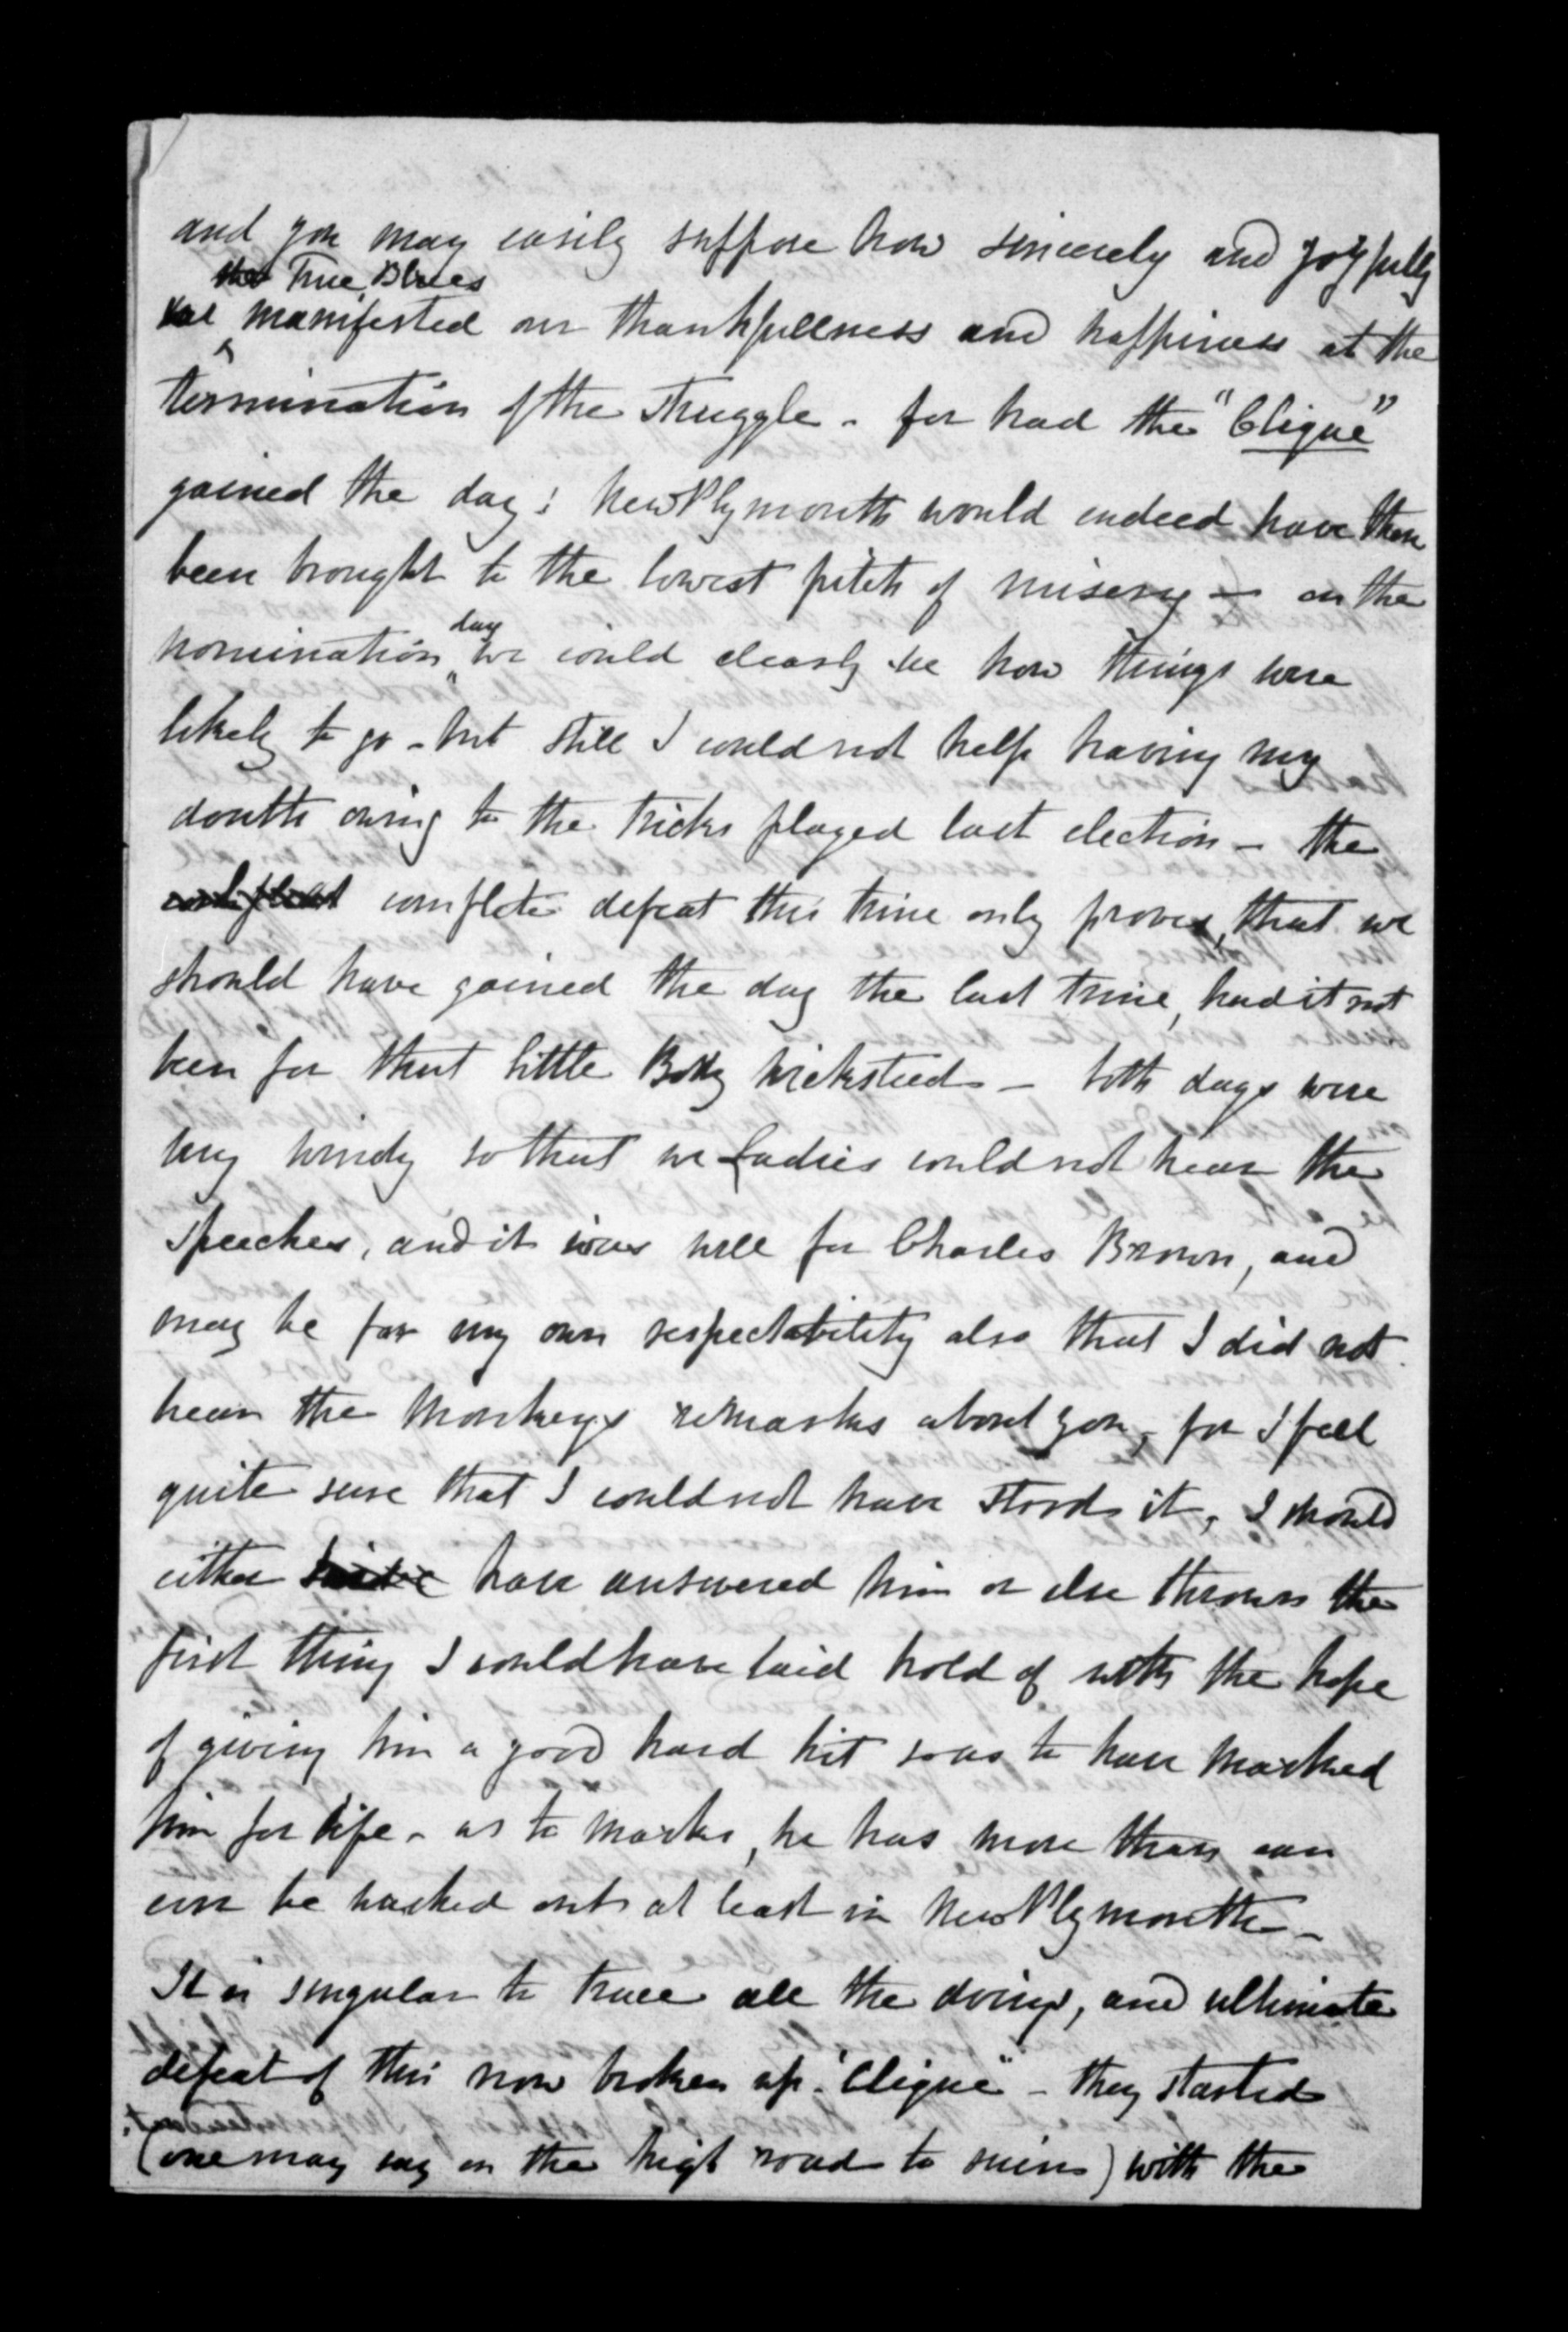 and you may easily suppose how sincerely and joyfully
the True Blues
we manifested our thankfullness and happiness at the
termination of the struggle - for had the "Clique"
gained the day; New Plymouth would indeed have then
been brought to the lowest pitch of misery - on the
day
nomination we could clearly see how things were
likely to go - but still I could not help having my
doubts owing to the tricks played last election - the
complete defeat this time only proves, that we
should have gained the day the last time, had it not
been for that little Body Wicksteed - both days were
very windy so that we Ladies could not hear the
speeches, and it was well for Charles Brown, and
may be for my own respectability also that I did not
hear the Monkeys remarks about you, for I feel
quite sure that I could not have stood it, I should
either have answered him or else thrown the
first thing I could have laid hold of with the hope
of giving him a good hard hit so as to have marked
him for life - as to marks, he has more than can
ever be washed out at least in New Plymouth -
It is singular to trace all the doings, and ultimate
defeat of this now broken up "Clique" - they started
(one may say on the high road to ruin) with the